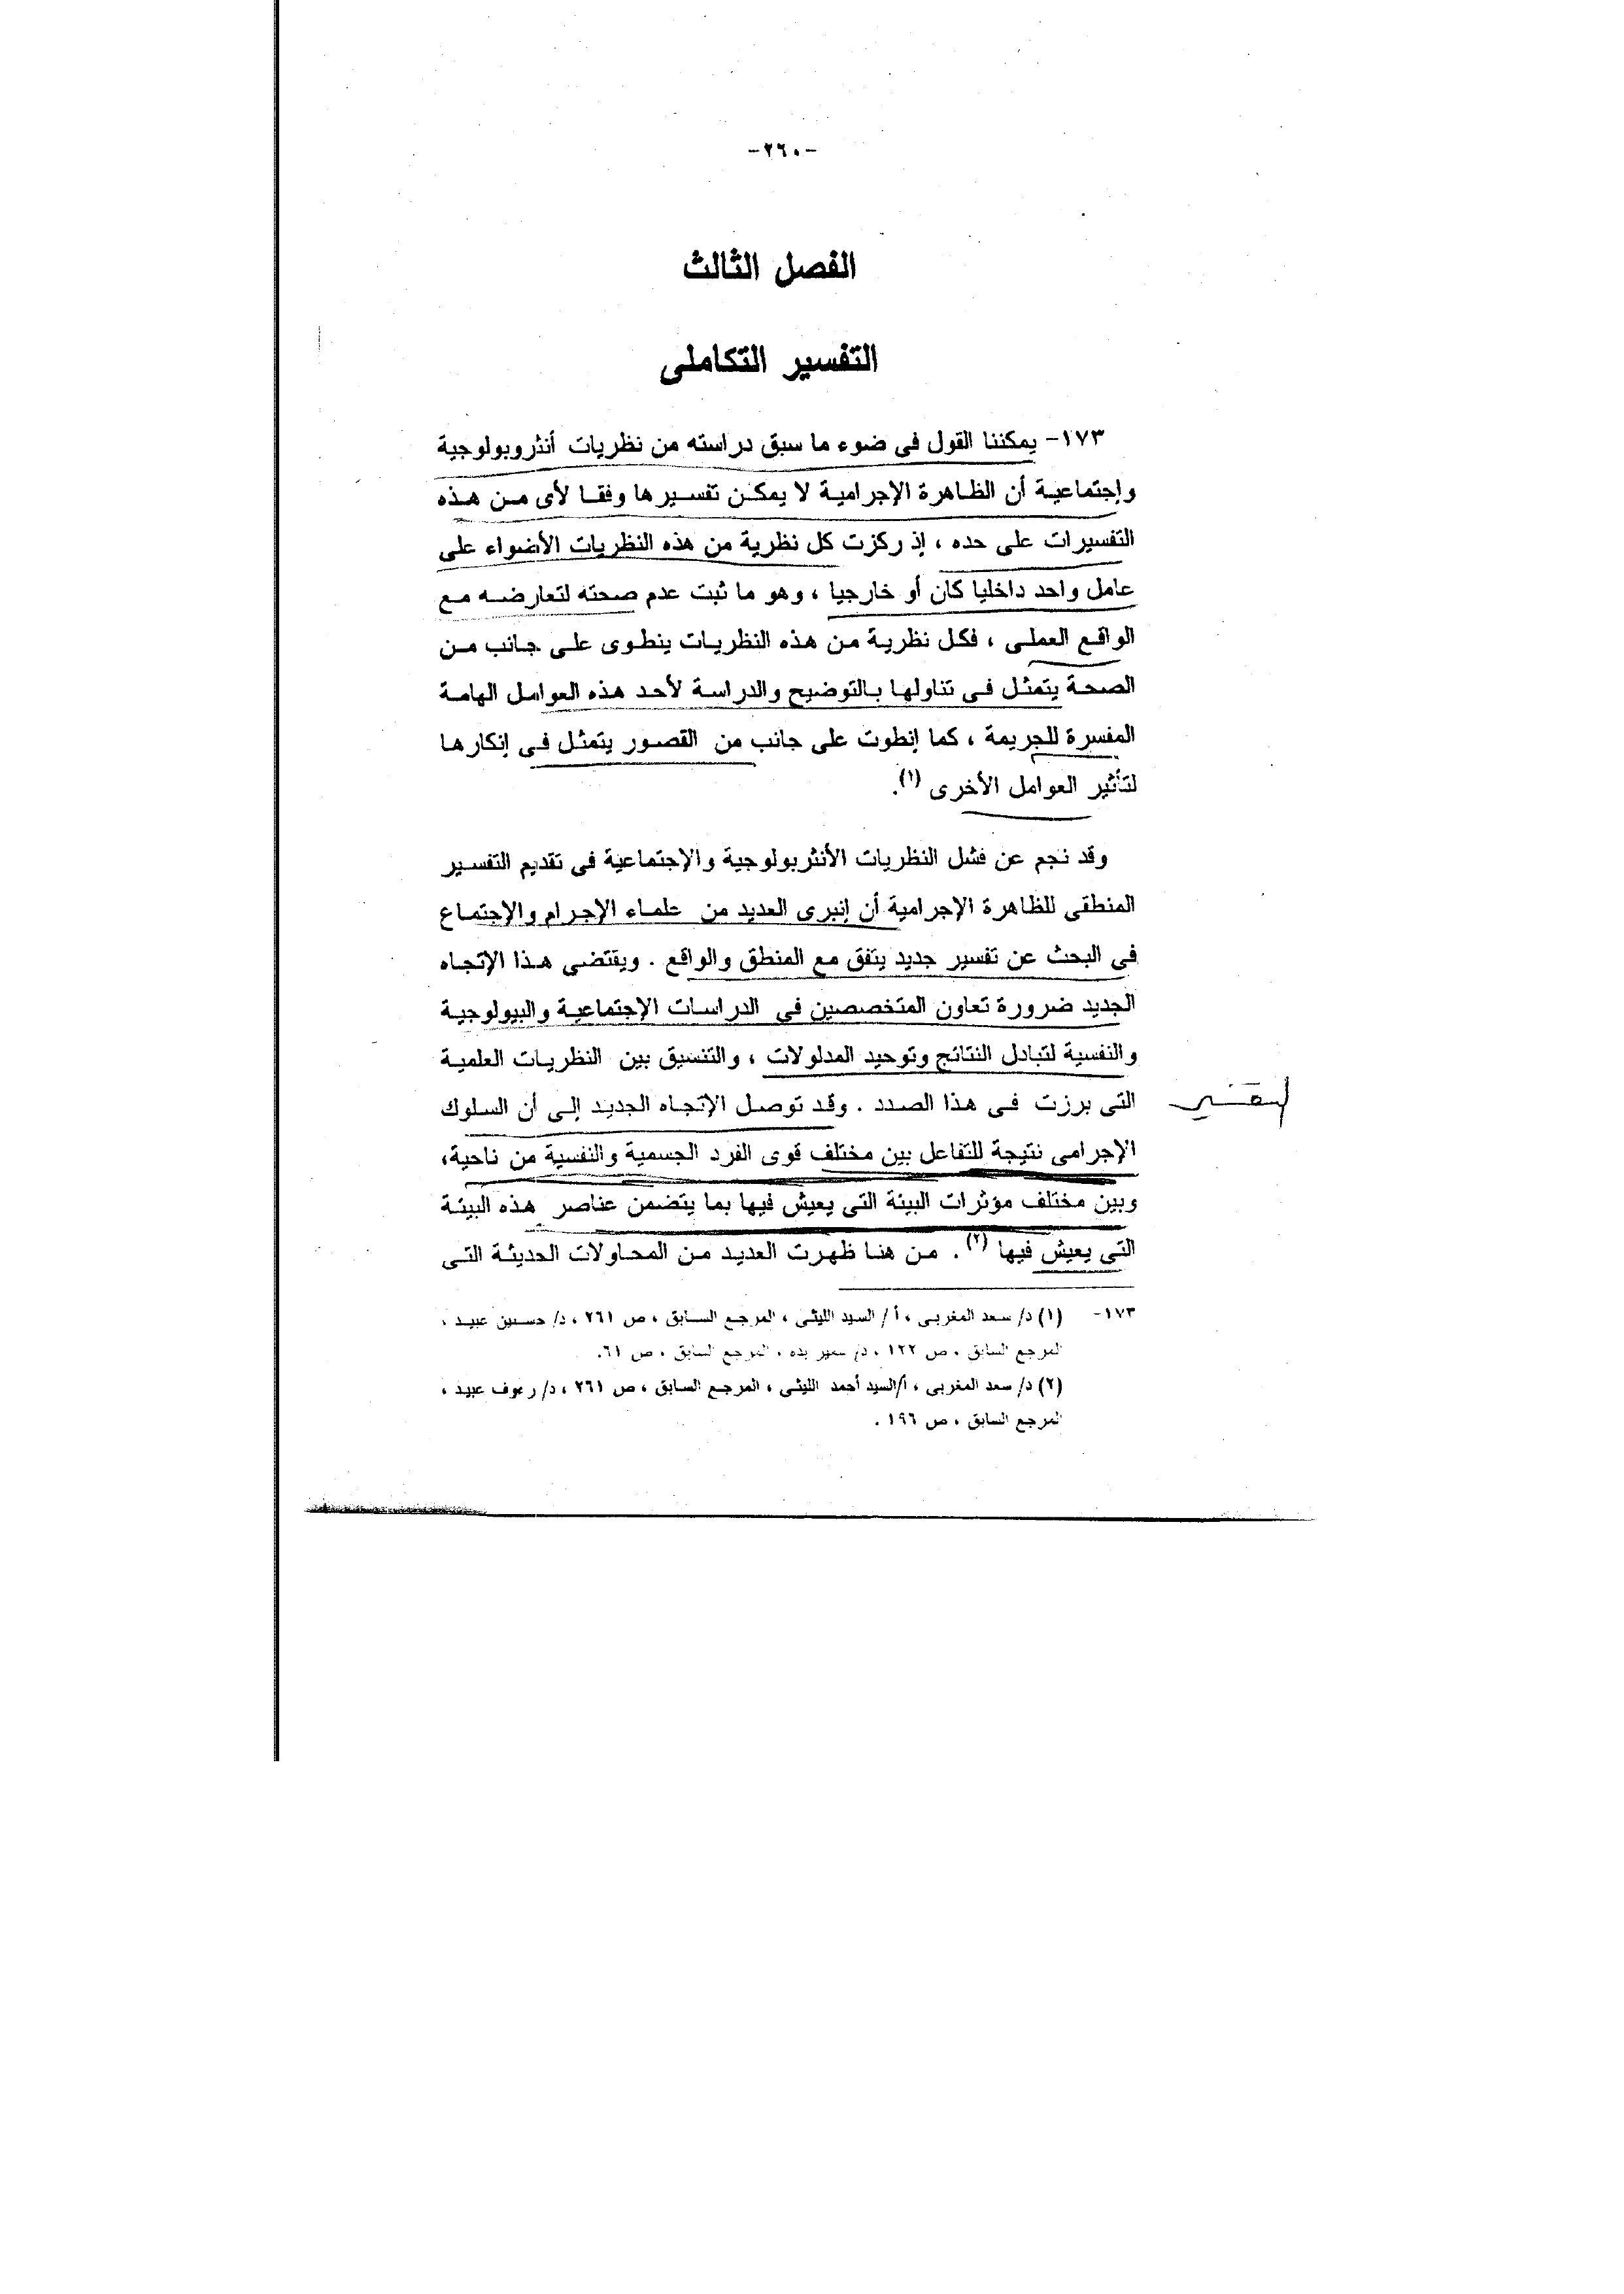 -٢٦٠-
الفصل الثالث
التفسير التكاملى
١٧٣- يمكننا القول فى ضوء ما سبق دراسته من نظريات أنثروبولوجية
وإجتماعية أن الظاهرة الإجرامية لا يمكن تفسيرها وفقا لأى من هذه
التفسيرات على حده ، إذ ركزت كل نظرية من هذه النظريات الأضواء على
عامل واحد داخليا كان أو خارجيا ، وهو ما ثبت عدم صحته لتعارضه مع
الواقع العملى ، فكل نظرية من هذه النظريات ينطوى على جانب من
الصحة يتمثل فى تناولها بالتوضيح والدراسة لأحد هذه العوامل الهامة
المفسرة للجريمة ، كما إنطوت على جانب من القصور يتمثل فى إنكارها
لتأثير العوامل الأخرى (١).
وقد نجم عن فشل النظريات الأنثربولوجية والإجتماعية فى تقديم التفسير
المنطقى للظاهرة الإجرامية أن إنبرى العديد من علماء الإجرام والإجتماع
فى البحث عن تفسير جديد يتفق مع المنطق والواقع . ويقتضى هذا الإتجاه
الجديد ضرورة تعاون المتخصصين فى الدراسات الإجتماعية والبيولوجية
والنفسية لتبادل النتائج وتوحيد المدلولات ، والتنسيق بين النظريات العلمية
التى برزت فى هذا الصدد . وقد توصل الإتجاه الجديد إلى أن السلوك
الإجرامى نتيجة للتفاعل بين مختلف قوى الفرد الجسمية والنفسية من ناحية،
وبين مختلف مؤثرات البيئة التى يعيش فيها بما يتضمن عناصر هذه البيئة
التى يعيش فيها (٢). من هنا ظهرت العديد من المحاولات الحديثة التى
١٧٣- (١) د/ سعد المغربى ، أ/ السيد الليثى ، المرجع السابق ، ص ٢٦١ ، د/ حسنين عبيد ،
المرجع السابق ، ص ١٢٢ ، د/ سمير ، المرجع السابق ، ص ٦١.
(٢) د/ سعد المغربى ، أ/السيد أحمد الليثى ، المرجع السابق ، ص ٢٦١ ، د/ رءوف عبيد ،
المرجع السابق ، ص ١٩٦ .